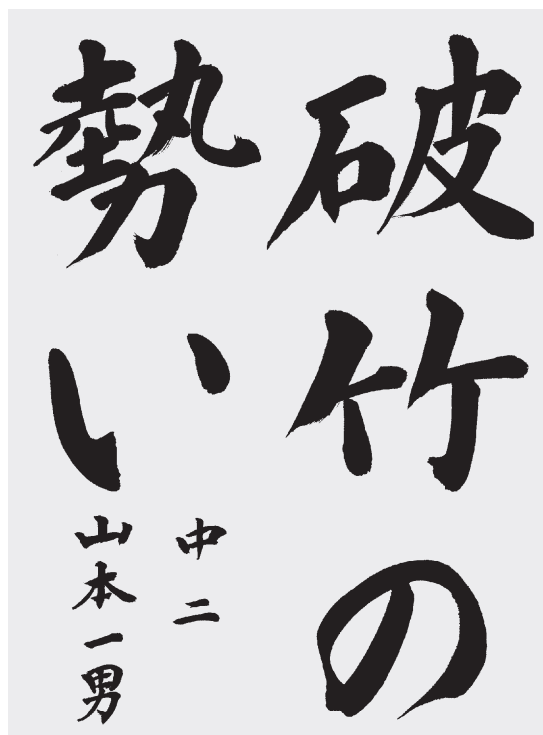 破竹の
勢い
中二
山本一男